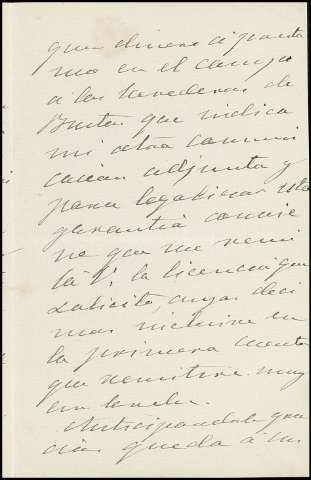 quen dinero á presta
mo en el campo
a los herederos de
que indica
mi otra comuni
cacion adjunta y
para legalizar esta
garantia convie
ne que me remi
ta V. la licencia que
solicito, cuyos deci
mos incluire en
la primera cuenta
que remitire muy
en breve.
Anticipandole gra
cias queda á sus